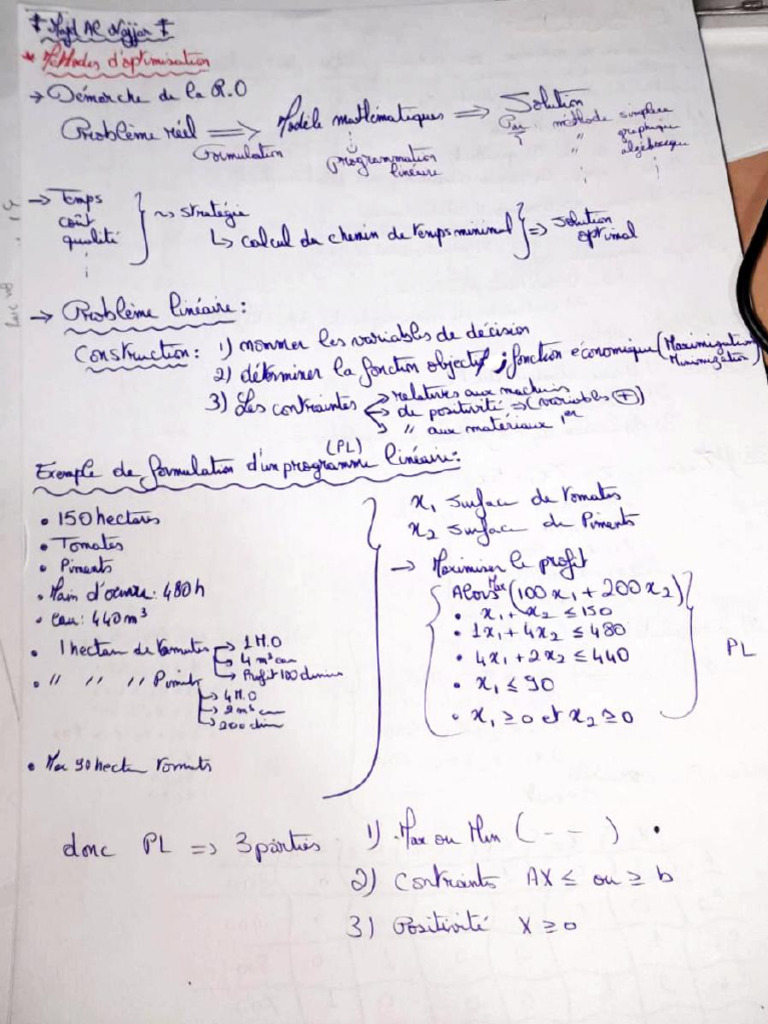 * Majd AL Najjar *
* Méthodes d'optimisation
→ Démarche de la R.O
Problème réel ⇒ Modèle mathématiques ⇒ Solution
Formulation
programmation linéaire
Par : méthode simplexe
" graphique
" algébrique
→ Temps
coût
qualité
~> stratégie
↳ calcul du chemin de temps minimal ⇒ solution optimal
→ Problème linéaire :
Construction : 1) nommer les variables de décision
2) déterminer la fonction objectif ; fonction économique (Maximization Minimization)
3) Les contraintes → relatives aux machines
→ de positivité ⇒ (variables +)
→ " aux matériaux 1er
Exemple de formulation d'un programme linéaire : (PL)
• 150 hectares
• Tomates
• Piments
• Main d'oeuvre : 480h
• eau : 440 m³
• 1 hectare de tomates → 1 M.O
→ 4 m³ eau
→ Profit 100 dinars
• " " " Piments
→ 4 M.O
→ 2 m³ eau
→ 200 din
• Max 90 hectares tomates
x₁ surface de tomates
x₂ surface de Piments
→ Maximiser le profit
Alors Max (100x₁ + 200x₂)
• x₁ + x₂ ≤ 150
• 1x₁ + 4x₂ ≤ 480
• 4x₁ + 2x₂ ≤ 440
• x₁ ≤ 90
• x₁ ≥ 0 et x₂ ≥ 0
PL
donc PL ⇒ 3 parties 1) Max ou Min (- - )
2) Contraints AX ≤ ou ≥ b
3) Positivité X ≥ 0